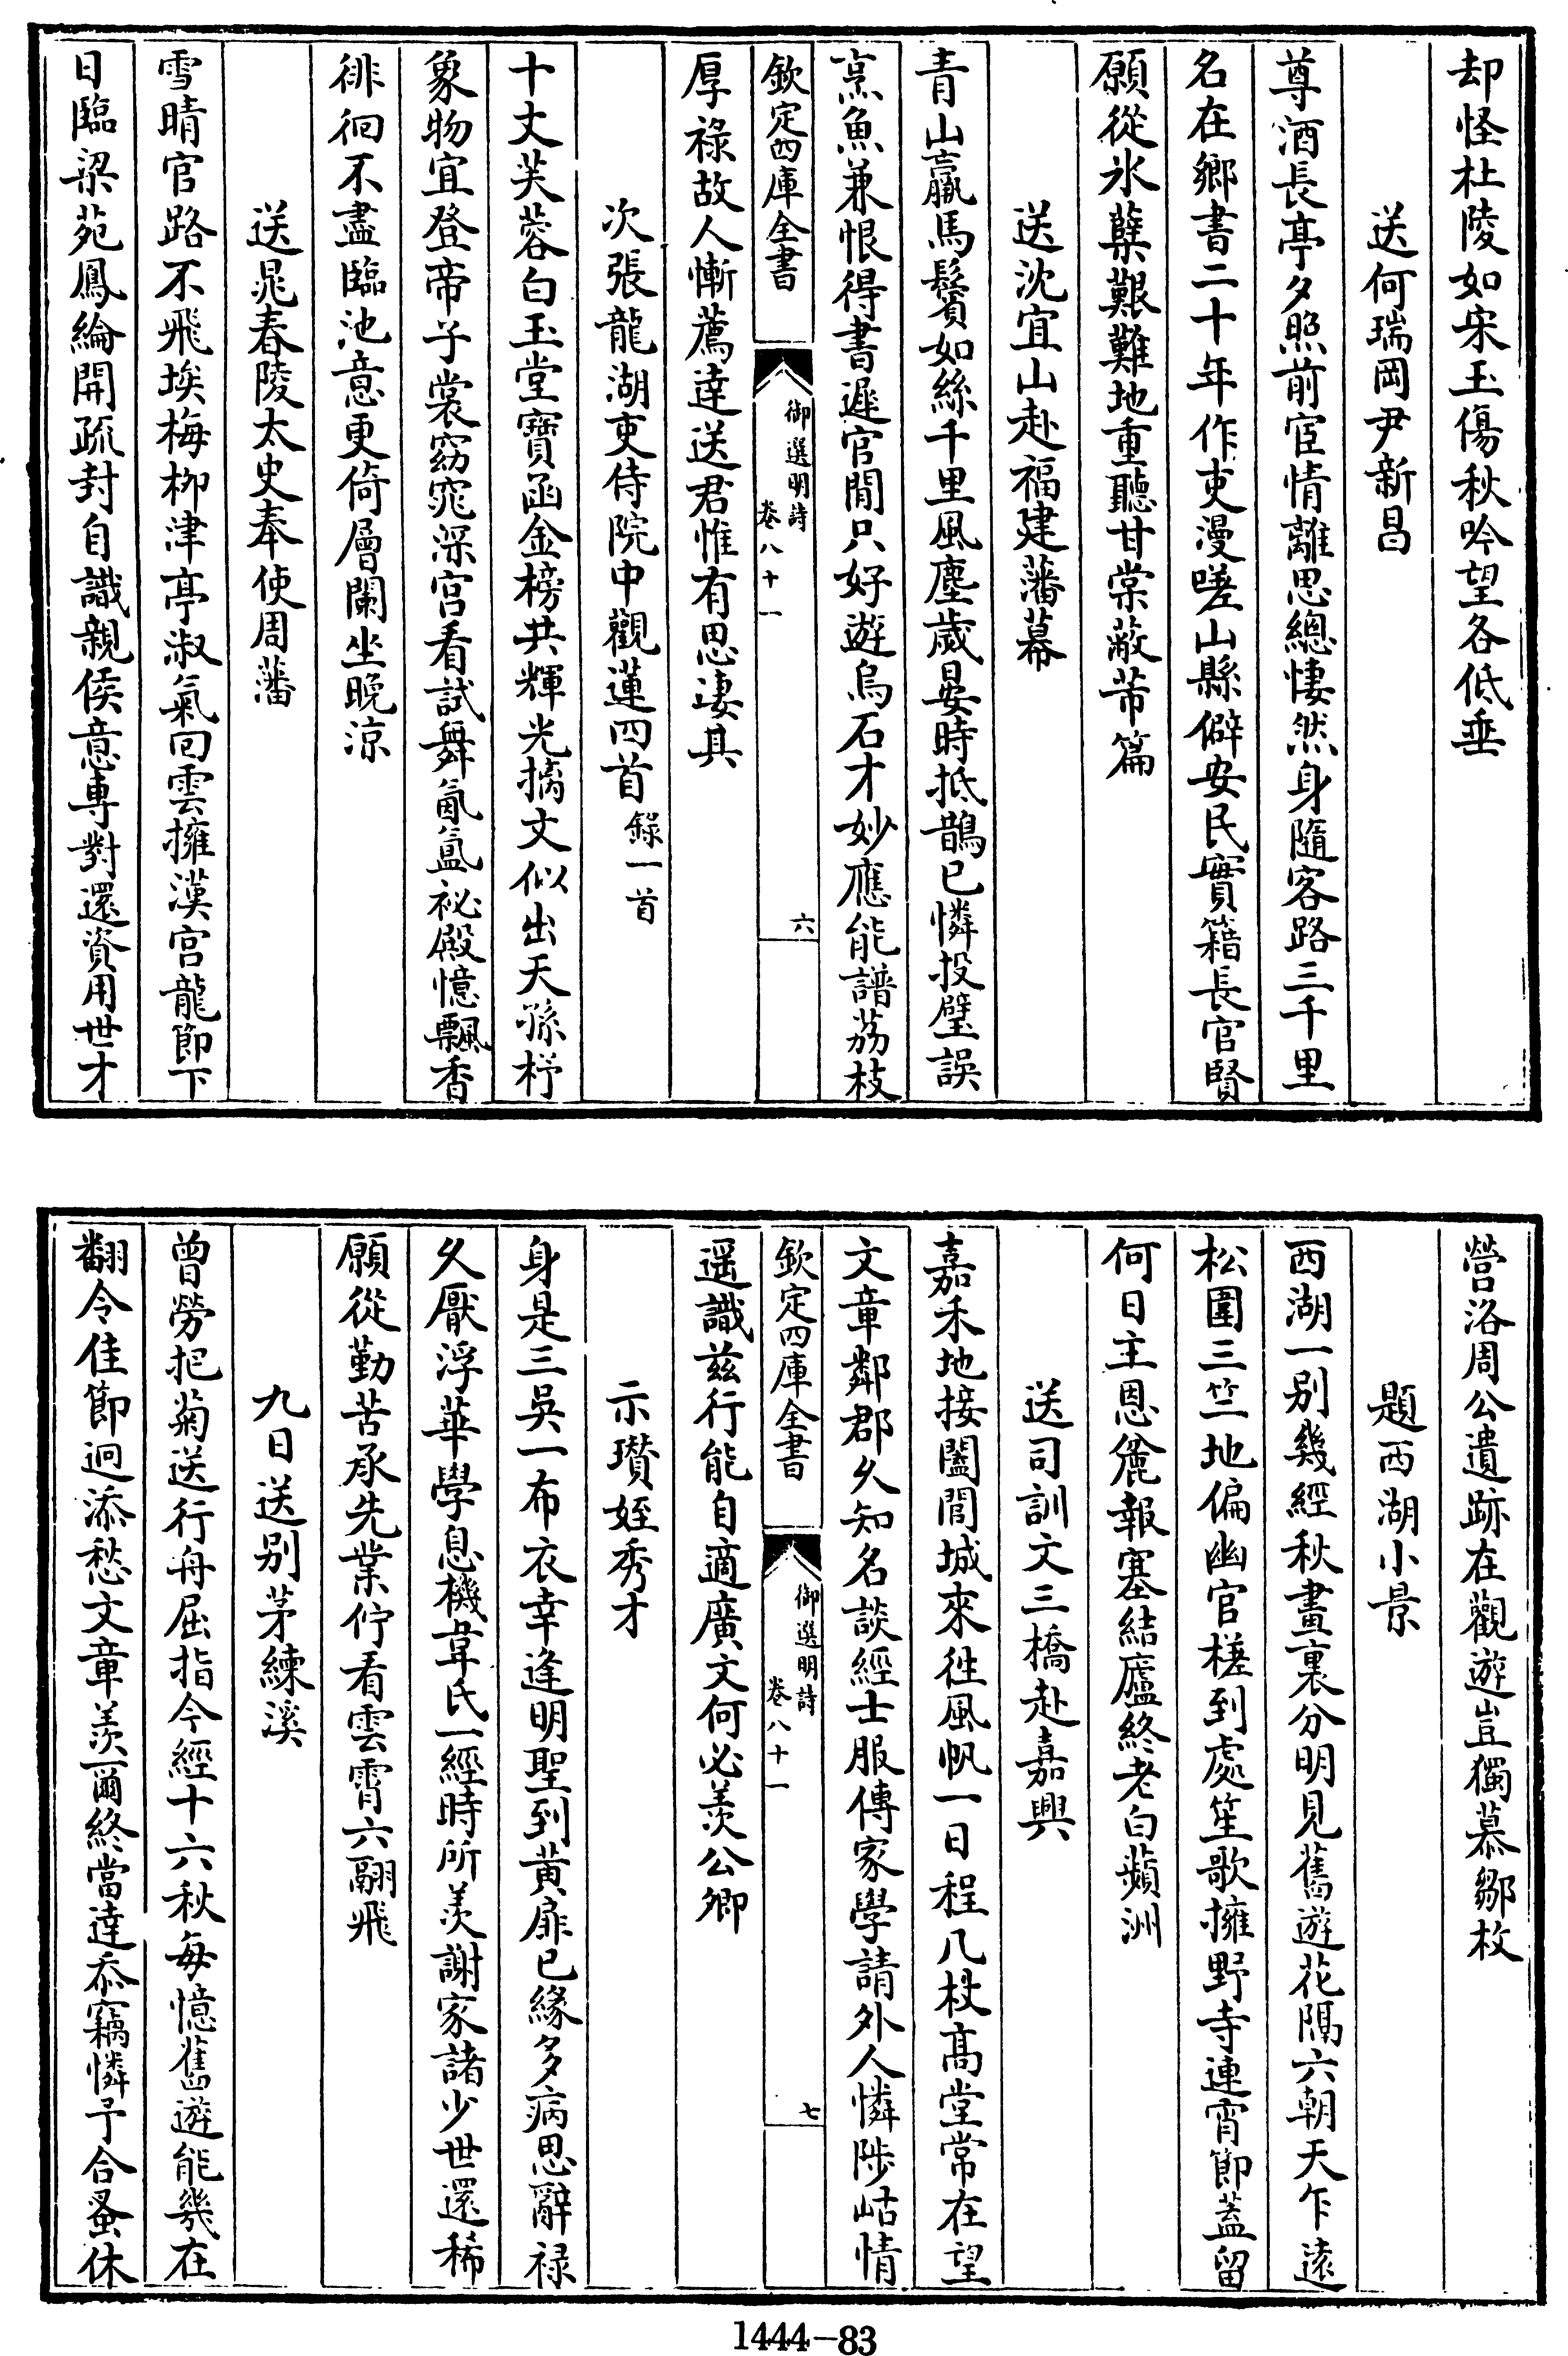 却怪杜陵如宋玉傷秋吟望各低垂
送何瑞岡尹新昌
尊酒長亭夕照前宦情離思總悽然身隨客路三千里
名在鄉書二十年作吏漫嗟山縣僻安民實籍長官賢
願從氷蘗艱難地重聽甘棠蔽芾篇
送沈宜山赴福建藩幕
青山羸馬鬢如絲千里風塵歲晏時抵鵲已憐投璧誤
烹魚兼恨得書遲官閒只好遊烏石才妙應能譜荔枝
欽定四庫全書
御選明詩
卷八十一
六
厚祿故人慚薦達送君惟有思凄其
次張龍湖吏侍院中觀蓮四首錄一首
十丈芙蓉白玉堂寶函金榜共輝光摛文似出天孫杼
象物宜登帝子裳窈窕深宮看試舞氤氳祕殿憶飄香
徘徊不盡臨池意更倚層闌坐晚涼
送晁春陵太史奉使周藩
雪晴官路不飛埃梅柳津亭淑氣回雲擁漢宮龍節下
日臨梁苑鳳綸開疏封自識親侯意專對還資用世才
營洛周公遺跡在觀遊豈獨慕鄒枚
題西湖小景
西湖一別幾經秋畫裏分明見舊遊花隝六朝天乍遠
松圍三竺地偏幽官槎到處笙歌擁野寺連宵節蓋留
何日主恩俻報塞結廬終老白蘋洲
送司訓文三橋赴嘉興
嘉禾地接闔閭城來往風帆一日程几杖高堂常在望
文章鄰郡久知名談經士服傳家學請外人憐陟岵情
欽定四庫全書
御選明詩
卷八十一
七
遥識茲行能自適廣文何必羨公卿
示瓚姪秀才
身是三吳一布衣幸逢明聖到黃扉已緣多病思辭祿
久厭浮華學息機韋氏一經時所羨謝家諸少世還稀
願從勤苦承先業佇看雲霄六翮飛
九日送別茅練溪
曾勞把菊送行舟屈指今經十六秋每憶舊遊能幾在
翻令佳節迥添愁文章羨爾終當達忝竊憐予合蚤休
1444-83